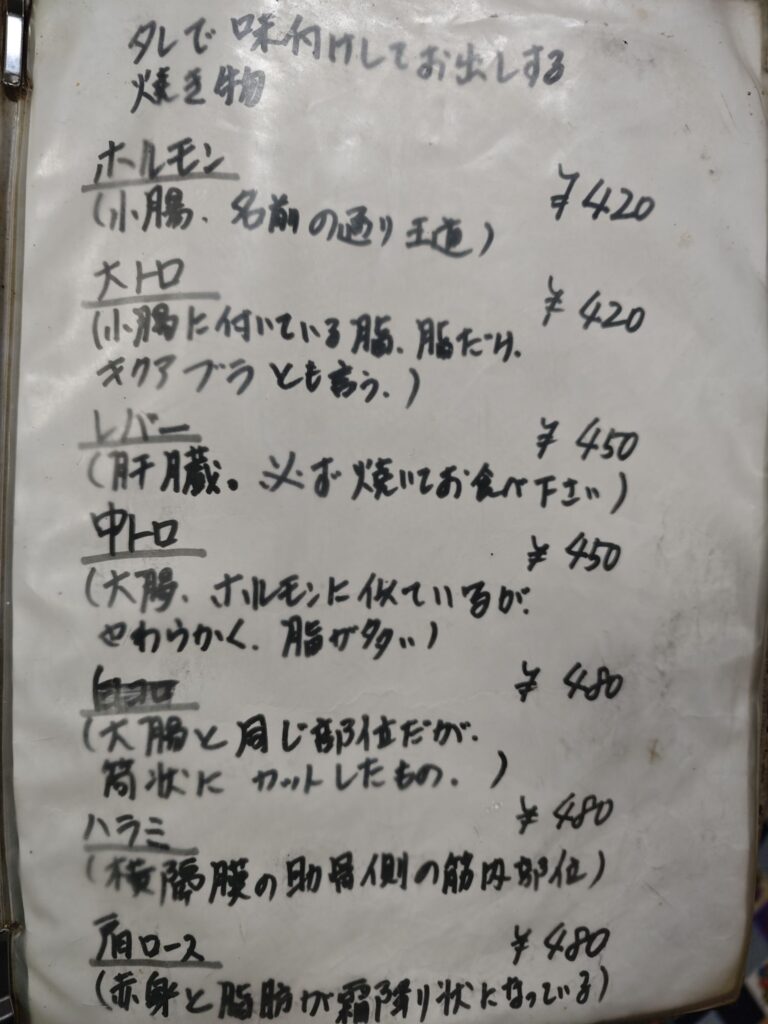 タレで味付けしてお出しする
焼き物
ホルモン
(小腸、名前の通り王道)
¥420
大トロ
(小腸に付いている脂、脂だけ、
キクアブラとも言う、)
¥420
レバー
(肝臓。必ず焼いてお食べ下さい)
¥450
中トロ
(大腸、ホルモンに似ているが、
やわらかく、脂が多い)
¥450
(大腸と同じ部位だが、
筒状にカットしたもの、)
¥480
ハラミ
(横隔膜の助骨側の筋肉部位)
¥480
肩ロース
(赤身と脂肪が霜降り状になっている)
¥480